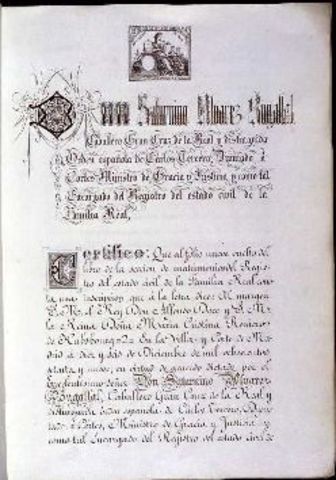 Don Saturnino Alvarez Bugallal,
Caballero Gran Cruz de la Real y distinguida
Orden española de Carlos Tercero, Diputado á
Cortes Ministro de Gracia y Justicia, y como tal
Encargado del Registro del estado civil de la
Familia Real,
Certifico: Que al folio nueve vuelto del
libro de la seccion de matrimonios del Regis-
tro del estado civil de la Familia Real cons-
ta una inscripcion que á la letra dice: Al margen
S. M. el Rey Don Alfonso Doce y S. M.
la Reina Doña Maria Cristina
de Habsbourg En la Villa y Corte de Ma-
drid á diez y seis de Diciembre de mil ochocientos
setenta y nueve, en virtud de dictado por el
Excelentisimo señor Don Saturnino Alvarez
Bugallal, Caballero Gran Cruz de la Real y
distinguida orden española de Carlos Tercero, Dipu-
tado á Cortes, Ministro de Gracia y Justicia y
como tal Encargado del Registro del estado civil de